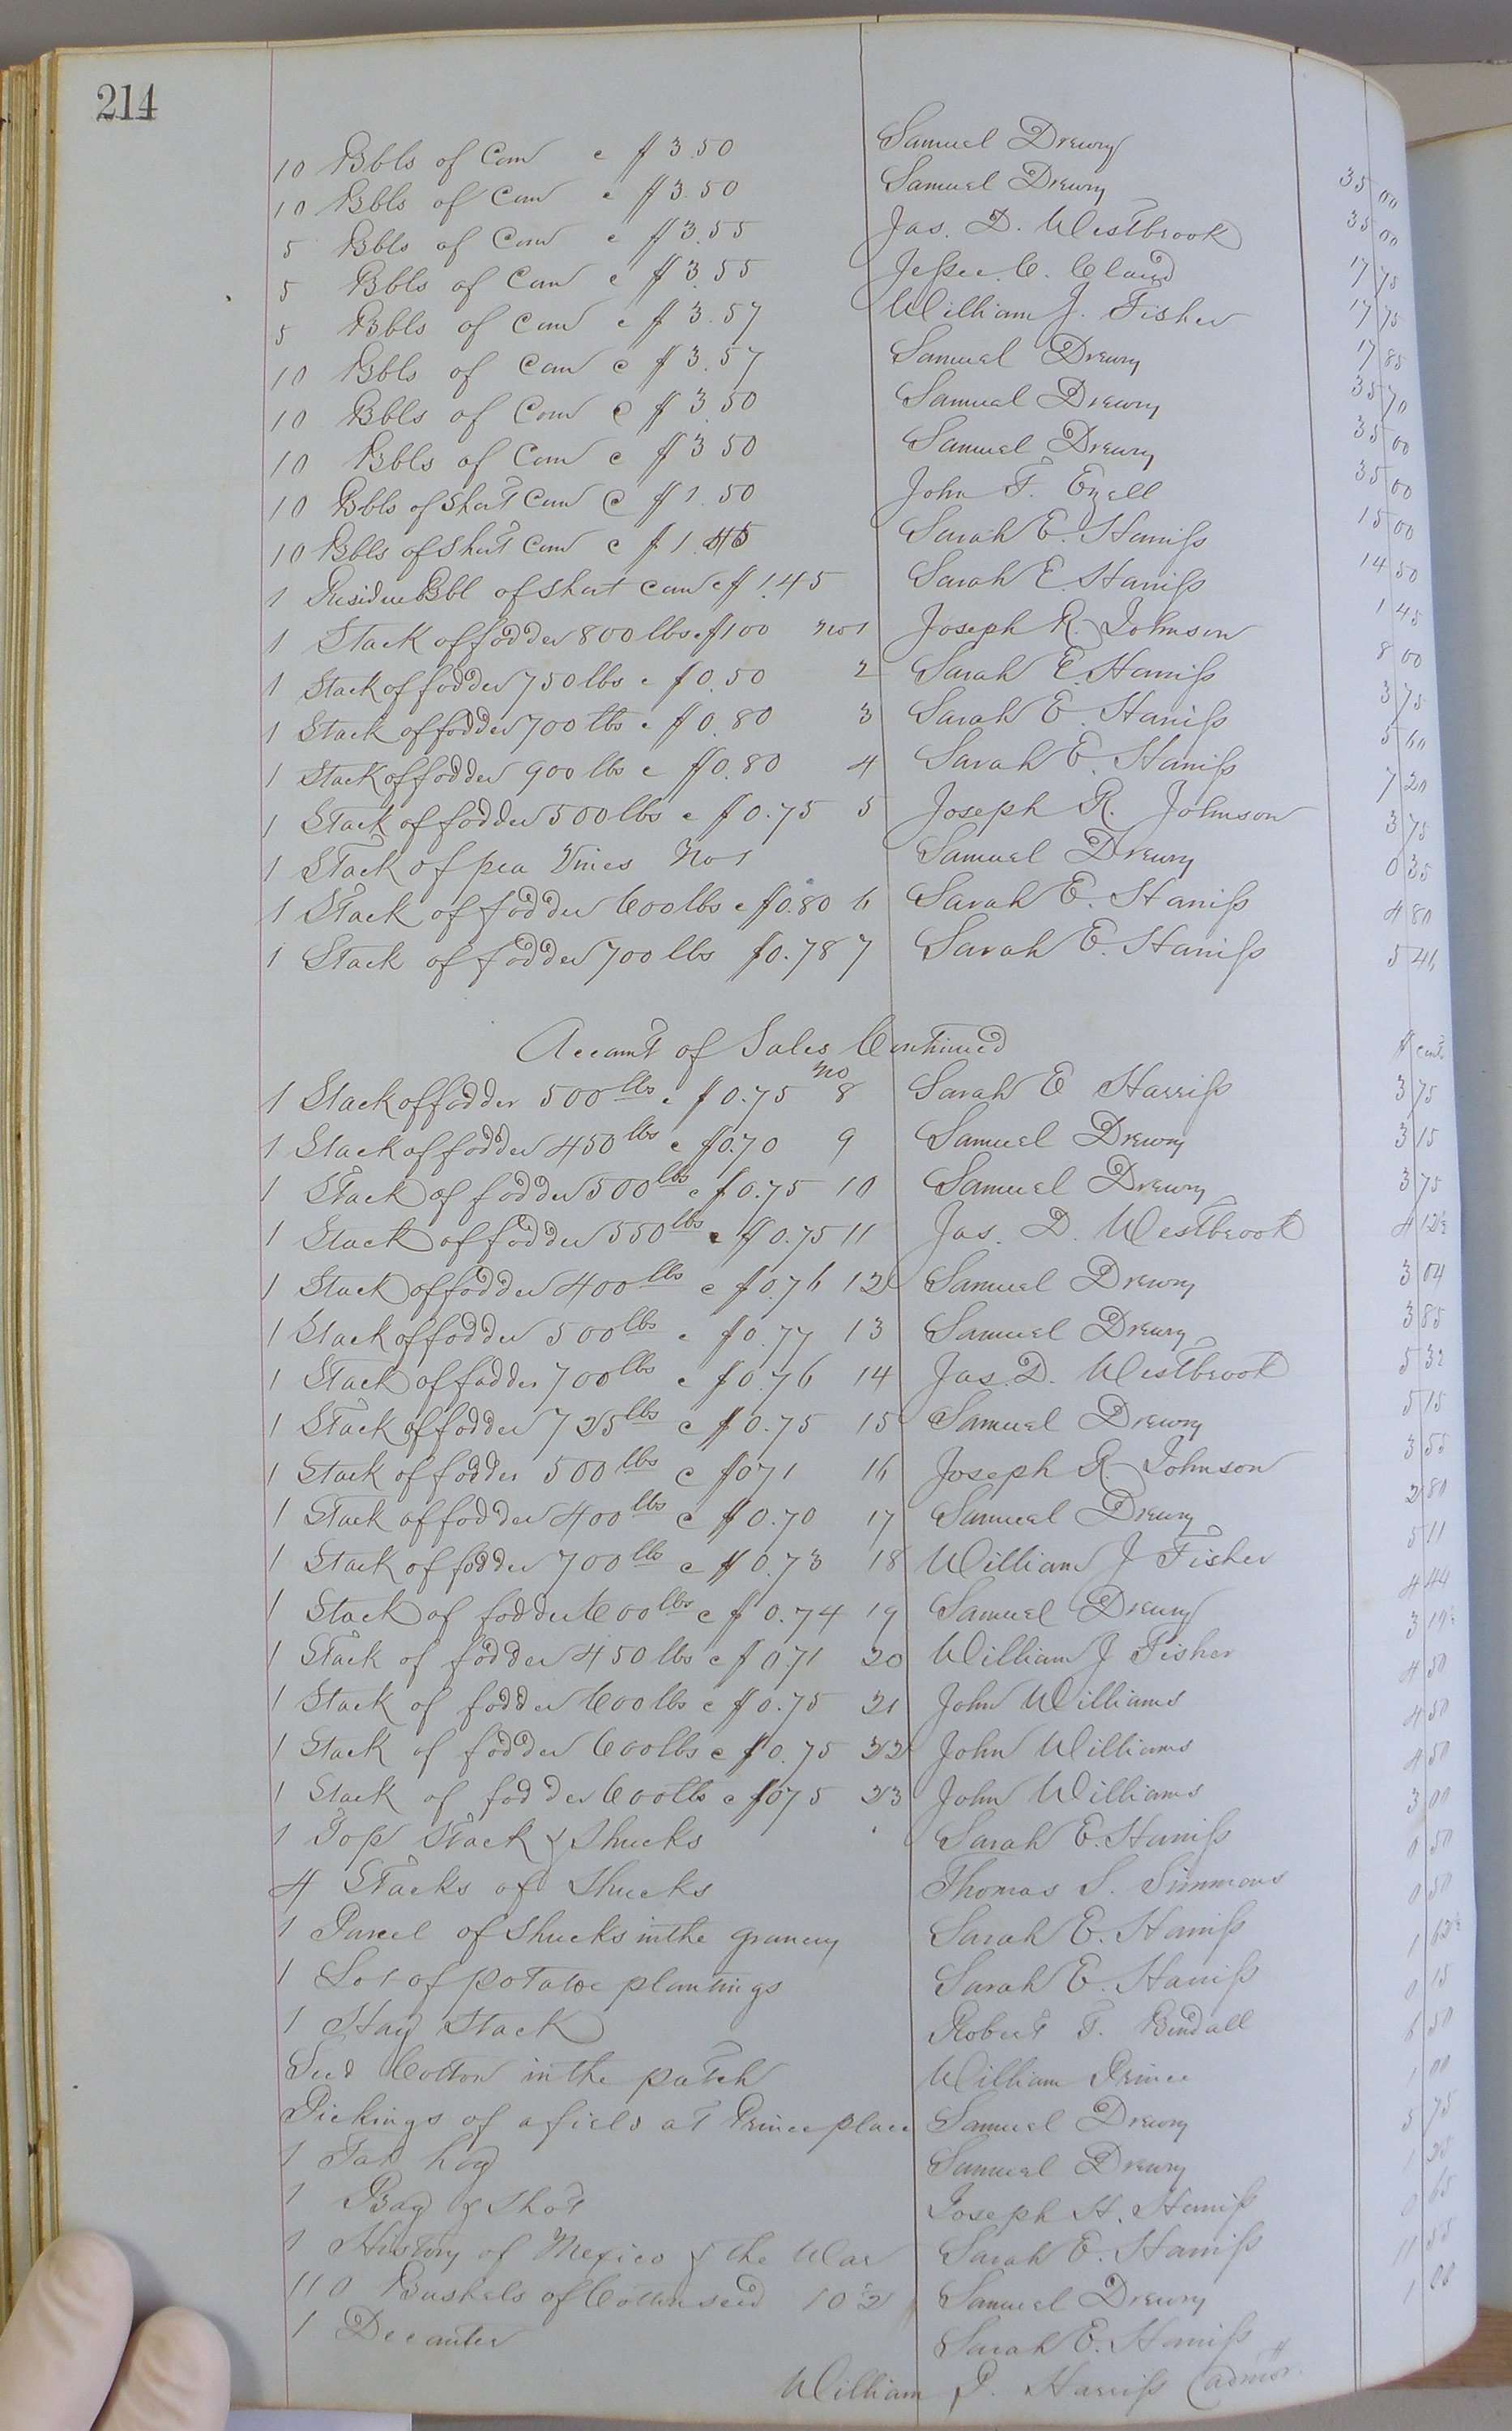 214
10 Bbls of Corn @ $3.50 Samuel Drewry 35 00
10 Bbls of Corn @ $3.50 Samuel Drewry 35 00
5 Bbls of Corn @ $3.55 Jas. D. Westbrook 17 75
5 Bbls of Corn @ $3.55 Jessee C. Claud 17 75
5 Bbls of Corn @ $3.57 William J. Fisher 17 85
10 Bbls of Corn @ $3.57 Samuel Drewry 35 70
10 Bbls of Corn @ $3.50 Samuel Drewry 35 00
10 Bbls of Corn @ $3.50 Samuel Drewry 35 00
10 Bbls of Short Corn @ $1.50 John F. Ezell 15 00
10 Bbls of Short Corn @ $1.45 Sarah E. Harriss 14 50
1 Residue Bbl of Short Corn @ $1.45 Sarah E. Harriss 1 45
1 Stack of fodder 800 lbs @ $1 00 No 1 Joseph R. Johnson 8 00
1 Stack of fodder 750 lbs @ $0.50 2 Sarah E. Harriss 3 75
1 Stack of fodder 700 lbs @ $0.80 3 Sarah E. Harriss 5 60
1 Stack of fodder 900 lbs @ $0.80 4 Sarah E. Harriss 7 20
1 Stack of fodder 500 lbs @ $0.75 5 Joseph R. Johnson 3 75
1 Stack of pea Vines No 1 Samuel Drewry 0 35
1 Stack of fodder 600 lbs @ $0.80 6 Sarah E. Harriss 4 80
1 Stack of fodder 700 lbs $0.78 7 Sarah E. Harriss 5 46
Account of Sales Continued $ cents
1 Stack of fodder 500 lbs @ $0.75 No 8 Sarah E Harriss 3 75
1 Stack of fodder 450 lbs @ $0.70 9 Samuel Drewry 3 15
1 Stack of fodder 500 lbs @ $0.75 10 Samuel Drewry 3 75
1 Stack of fodder 550 lbs @ $0.75 11 Jas. D. Westbrook 4 12½
1 Stack of fodder 400 lbs @ $0.76 12 Samuel Drewry 3 04
1 Stack of fodder 500 lbs @ $0.77 13 Samuel Drewry 3 85
1 Stack of fodder 700 lbs @ $0.76 14 Jas. D. Westbrook 5 32
1 Stack of fodder 725 lbs @ $0.75 15 Samuel Drewry 5 15
1 Stack of fodder 500 lbs @ $0 71 16 Joseph R. Johnson 3 55
1 Stack of fodder 400 lbs @ $0.70 17 Samuel Drewry 2 80
1 Stack of fodder 700 lbs @ $0.73 18 William J Fisher 5 11
1 Stack of fodder 600 lbs @ $0.74 19 Samuel Drewry 4 44
1 Stack of fodder 450 lbs @ $0 71 20 William J Fisher 3 19½
1 Stack of fodder 600 lbs @ $0.75 21 John Williams 4 50
1 Stack of fodder 600 lbs @ $0.75 22 John Williams 4 50
1 Stack of fodder 600 lbs @ $0 75 23 John Williams 4 50
1 Top Stack & Shucks Sarah E. Harriss 3 00
4 Stacks of Shucks Thomas S. Simmons 0 50
1 Parcel of Shucks in the granery Sarah E. Harriss 0 50
1 Lot of potatoe plantings Sarah E. Harriss 1 62½
1 Hay Stack Robert F. Bendall 0 15
Seed Cotton in the patch William Prince 6 50
Pickings of a field at Prince place Samuel Drewry 1 00
1 Fat hog Samuel Drewry 5 75
1 Bag of Shot Joseph H. Harriss 1 25
1 History of Mexico & the War Sarah E. Harriss 0 65
110 Bushels of Cotton seed 10½ Samuel Drewry 11 55
1 Decanter Sarah E. Harriss 1 00
William P. Harriss admor.